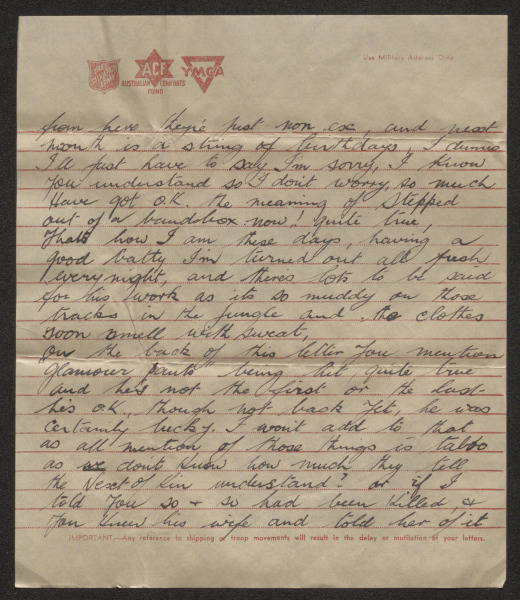 THE SALVATION ARMY
ACF
AUSTRALIAN COMFORTS
FUND
YMCA
Use Military Address Only
from here they're just non ex, and next
month is a string of birthdays, I dunno
I'll just have to say I'm sorry, I know
you understand so I don't worry, so much
Have got O.K. the meaning of Stepped
out of a bandobox now! quite true,
Thats how I am these days, having a
good batty I'm turned out all fresh
every night, and theres lots to be said
for his work as its so muddy on those
tracks in the jungle and the clothes
soon smell with sweat,
on the back of this letter you mention
glamour pants" being hit, quite true
and he's not the first or the last
he's O.K., though not back yet, he was
certainly lucky. I won't add to that
as all mention of those things is taboo
as we dont know how much they tell
the Next of Kin understand? or if I
told you so & so had been killed, &
you knew his wife and told her of it
IMPORTANT.—Any reference to shipping or troop movements will result in the delay or mutilation of your letters.